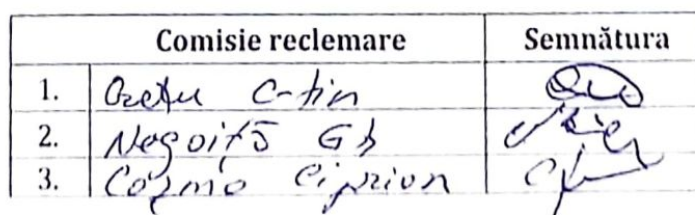 Comisie reclemare Semnătura
1. C-tin
2. Negoiță Gh
3. Cozma Ciprian